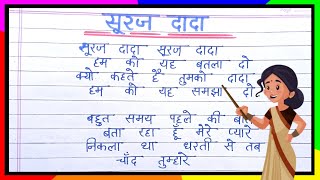 सूरज दादा
सूरज दादा सूरज दादा
हम को यह बतला दो
क्यो कहते हैं तुमको दादा
हम को यह समझा दो?
बहुत समय पहले की बात
बता रहा हूँ मेरे प्यारे
निकला था धरती से तब
चाँद तुम्हारे